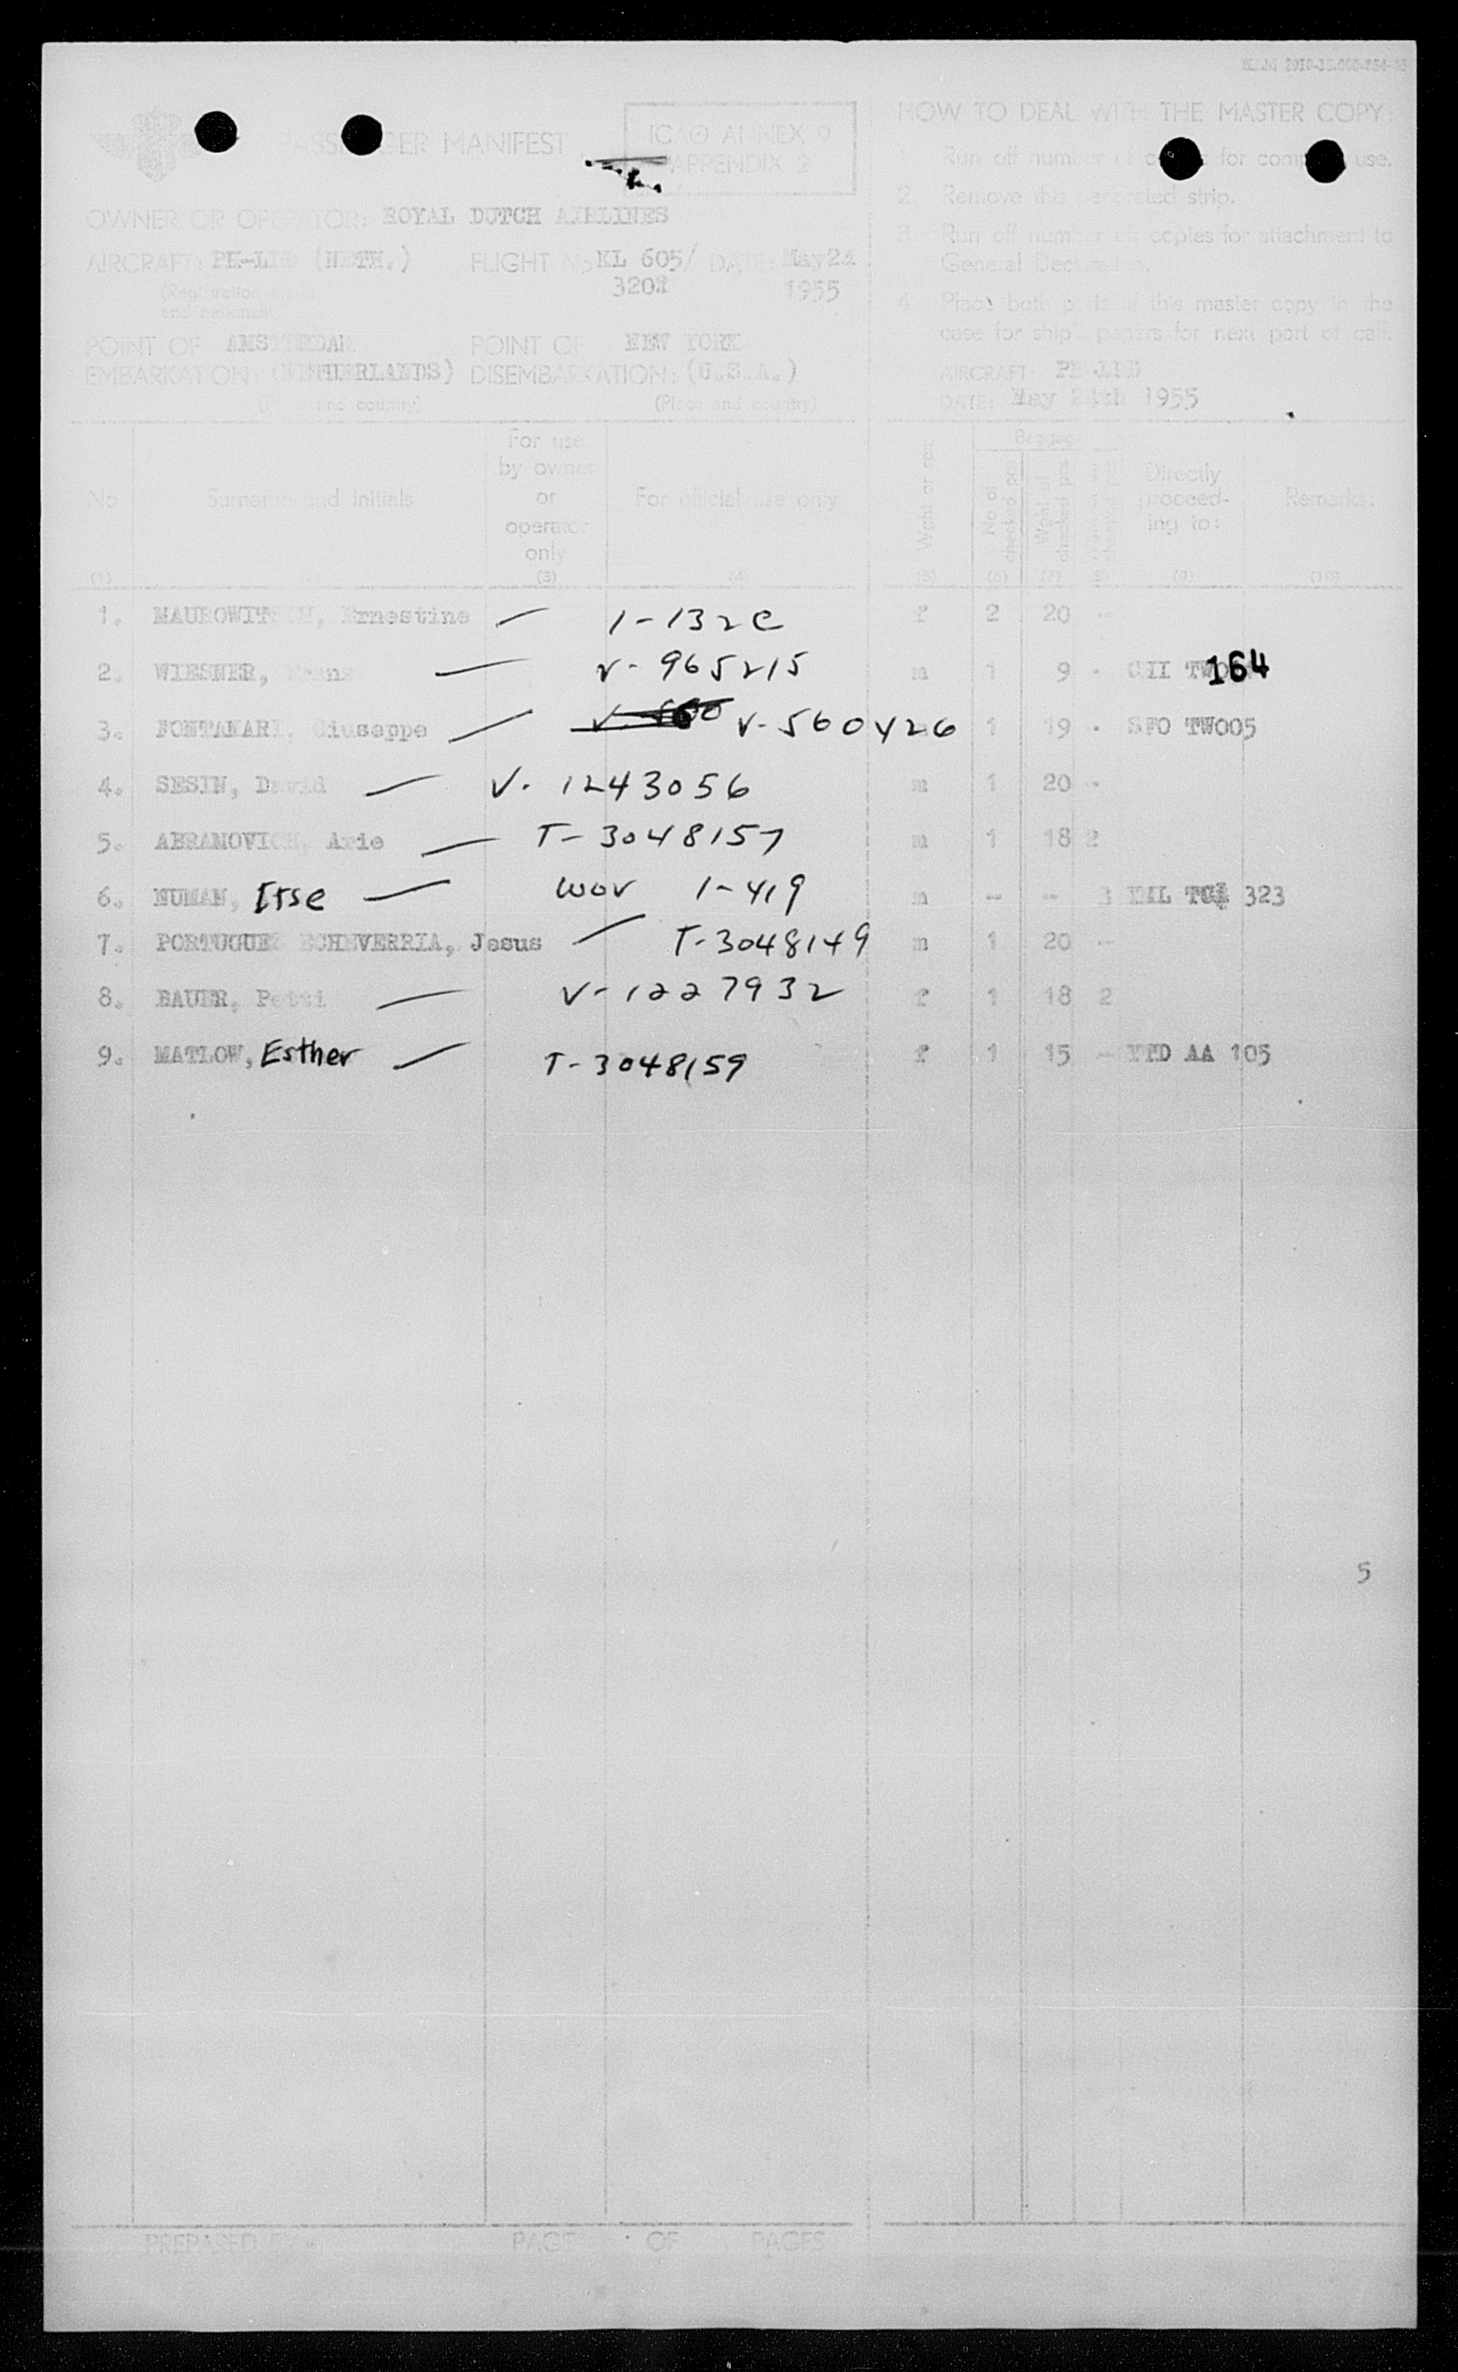 PASSENGER MANIFEST
ICAO ANNEX 9
APPENDIX 2
OWNER OR OPERATOR: ROYAL DUTCH AIRLINES
AIRCRAFT: (NETH.) FLIGHT No KL 605/ DATE: May
320 1955
(Registration
POINT OF AMSTERDAM POINT OF NEW YORK
EMBARKATION: (NETHERLANDS) DISEMBARKATION: (U.S.A.)
(Place and country) (Place and country)
HOW TO DEAL WITH THE MASTER COPY:
Run off number of copies for company use.
2. Remove this perforated strip.
3. Run off number of copies for attachment to
General Declaration.
4. Place both parts of this master copy in the
case for ship's papers for next port of call.
AIRCRAFT:
DATE: May 24th 1955
No Surname and initials For use by owner or operator only For official use only
No of checked Directly proceed-ing to: Remarks:
(1) (3) (4) (5) (6) (7) (9) (10)
1. MAUROWITSCH, Ernestine — 1-132C f 2 20 -
2. WIESNER, — V-965215 m 1 9 - 164
3. FONTANARI, Giuseppe — V-560426 1 19 - SFO TW005
4. SESIN, David — V-1243056 m 1 20 -
5. ABRAMOVICH, Arie — T-3048157 m 1 18 2
6. NUMAN, Itse — WOV 1-419 m -- -- 323
7. PORTUGUEZ ECHEVERRIA, Jesus — T-3048149 m 1 20 --
8. BAUER, — V-1227932 f 1 18 2
9. MATLOW, Esther — T-3048159 f 1 15 - AA 105
5
PREPARED BY PAGE OF PAGES